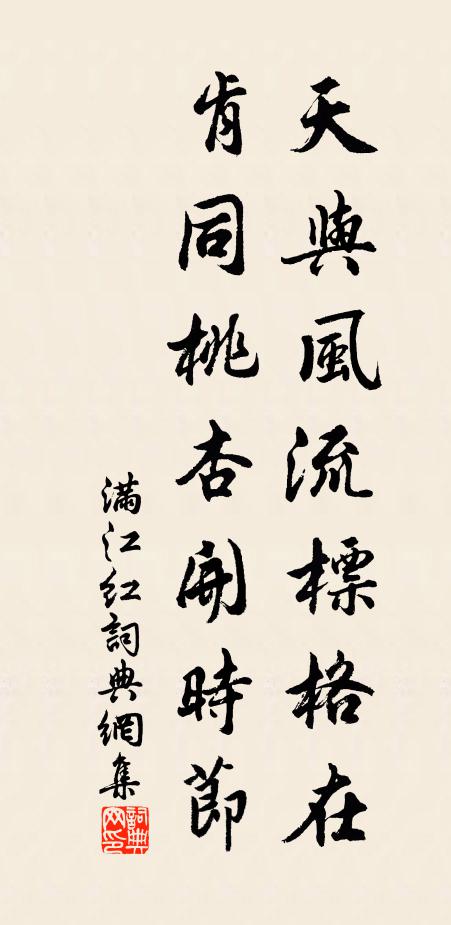 天與風流標格在
肯同桃杏開時節
滿江红詞典網集
詞典網印